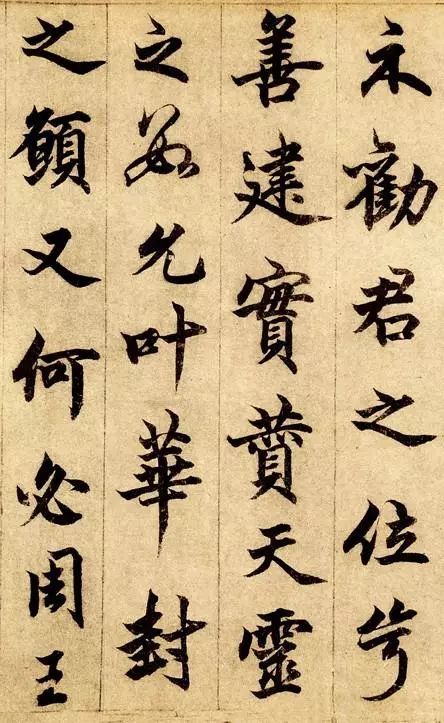 勸君之位
善建實賛天靈
之數允叶華封
之願又何必周王